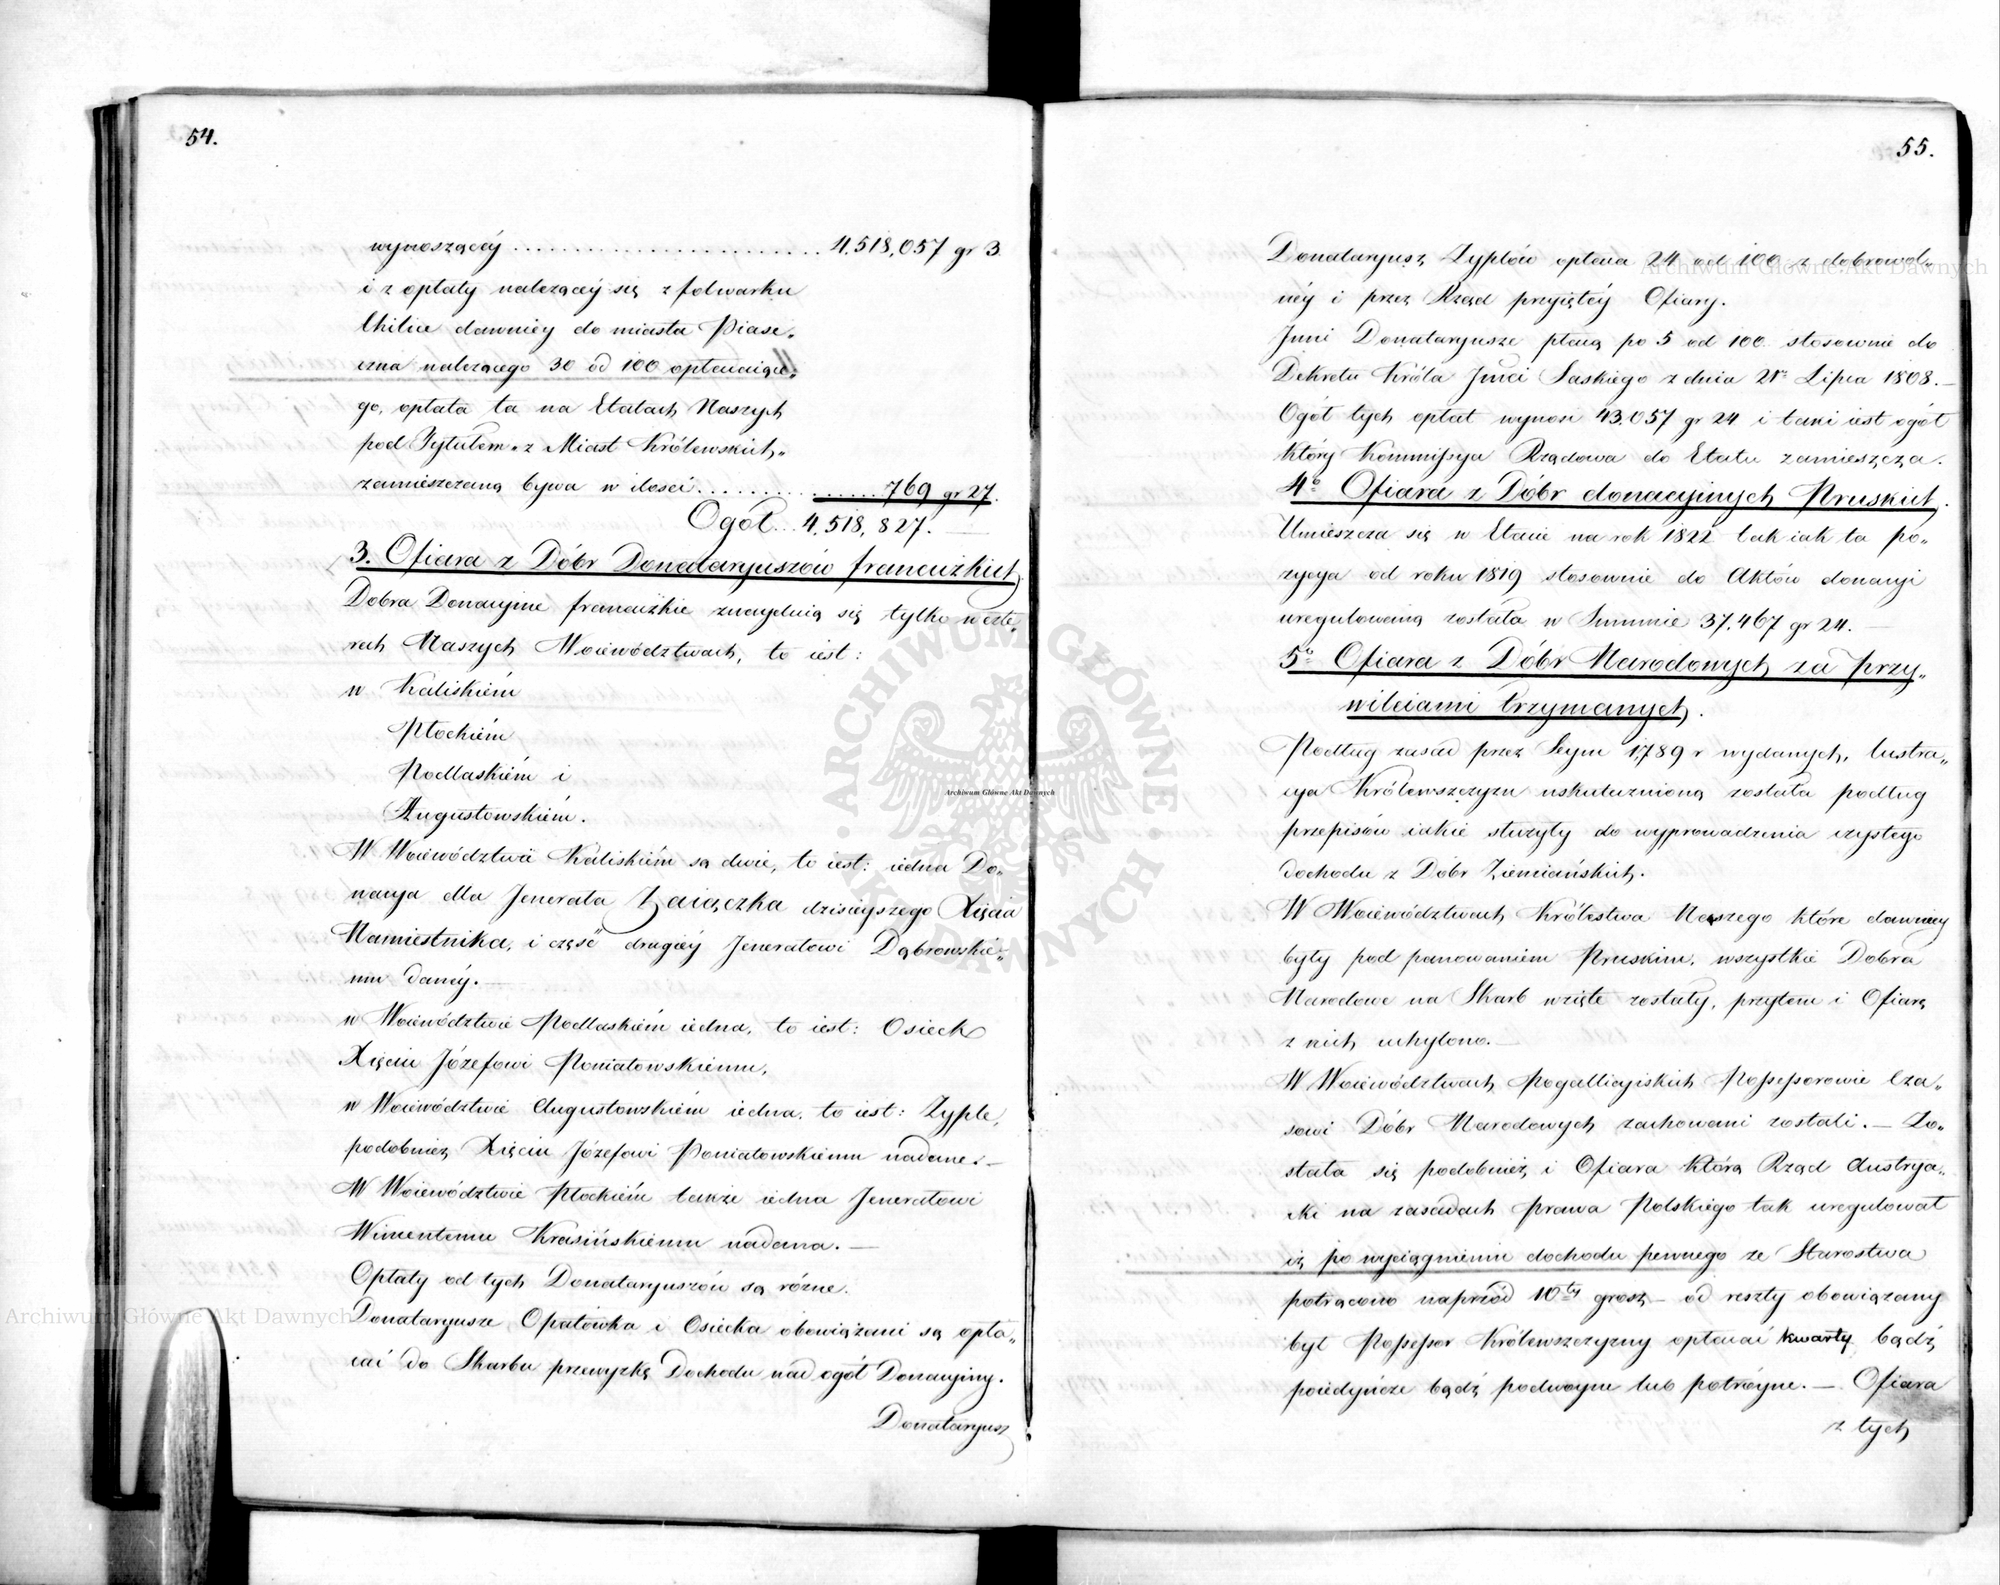 54.
wynoszącéy ........................ 4,518,057 gr 3.
i z opłaty należącéy się z folwarku
Chilice dawniey do miasta Piase„
czna należącego 30 od 100 opłacaiące„
go, opłata ta na Etatach Naszych
pod Tytułem „z Miast Królewskich„
zamieszczaną bywa w ilości .............. 769 gr 27.
Ogół... 4,518,827. —
3. Ofiara z Dóbr Donataryuszów francuzkich
Dobra Donacyine francuzkie znayduią się tylko w czte„
rech Naszych Woiewództwach, to iest:
w Kaliskiém
Płockiém
Podlaskiém i
Augustowskiém.
W Woiewództwie Kaliskiém są dwie, to iest: iedna Do„
nacya dla Jenerała Zaiączka dzisieyszego Xięcia
Namiestnika, i część drugiéy Jenerałowi Dąbrowskie„
mu danéy. —
w Woiewództwie Podlaskiém iedna, to iest: Osieck
Xięciu Józefowi Poniatowskiemu,
w Woiewództwie Augustowskiém iedna, to iest: Zyple,
podobnież Xięciu Józefowi Poniatowskiemu nadane. —
W Woiewództwie Płockiém także iedna Jenerałowi
Wincentemu Krasińskiemu nadana. —
Opłaty od tych Donataryuszów są różne.
Donataryusze Opatówka i Osiecka obowiązani są opła„
cać do Skarbu przewyżkę Dochodu nad ogół Donacyiny.
Donataryusz
55.
Donataryusz Zyplów opłaca 24 od 100 z dobrowol„
néy i przez Rząd przyiętéy Ofiary.
Inni Donataryusze płacą po 5 od 100 stosownie do
Dekretu Króla Jmci Saskiego z dnia 21º Lipca 1808. —
Ogół tych opłat wynosi 43,057 gr 24 i taki iest ogół
który Kommissya Rządowa do Etatu zamieszcza.
4º Ofiara z Dóbr donacyinych Pruskich.
Umieszcza się w Etacie na rok 1822 tak iak ta po„
zycya od roku 1819 stosownie do Aktów donacyi
uregulowaną została w Summie 37,467 gr 24. —
5º Ofiara z Dóbr Narodowych za przy„
wileiami trzymanych.
Podług zasad przez Seym 1,789 r wydanych, lustra„
cya Królewszczyzn uskutecznioną została podług
przepisów iakie służyły do wyprowadzenia czystego
dochodu z Dóbr Ziemiańskich.
W Woiewództwach Królestwa Naszego które dawniey
były pod panowaniem Pruskim, wszystkie Dobra
Narodowe na Skarb wzięte zostały, przytem i Ofiarę
z nich uchylono. —
W Woiewództwach Pogallicyiskich Possessorowie Cza„
sowi Dóbr Narodowych zachowani zostali. — Zo„
stała się podobnież i Ofiara którą Rząd Austrya„
cki na zasadach prawa Polskiego tak uregulował
iż po wyciągnieniu dochodu pewnego ze Starostwa
potrącono naprzód 10ty grosz — od reszty obowiązany
był Possessor Królewszczyzny opłacać kwartę bądź
poiedyńcze bądź podwóyne lub potróyne. — Ofiara
z tych
Archiwum Główne Akt Dawnych
Archiwum Główne Akt Dawnych
Archiwum Główne Akt Dawnych
ARCHIWUM GŁÓWNE AKT DAWNYCH